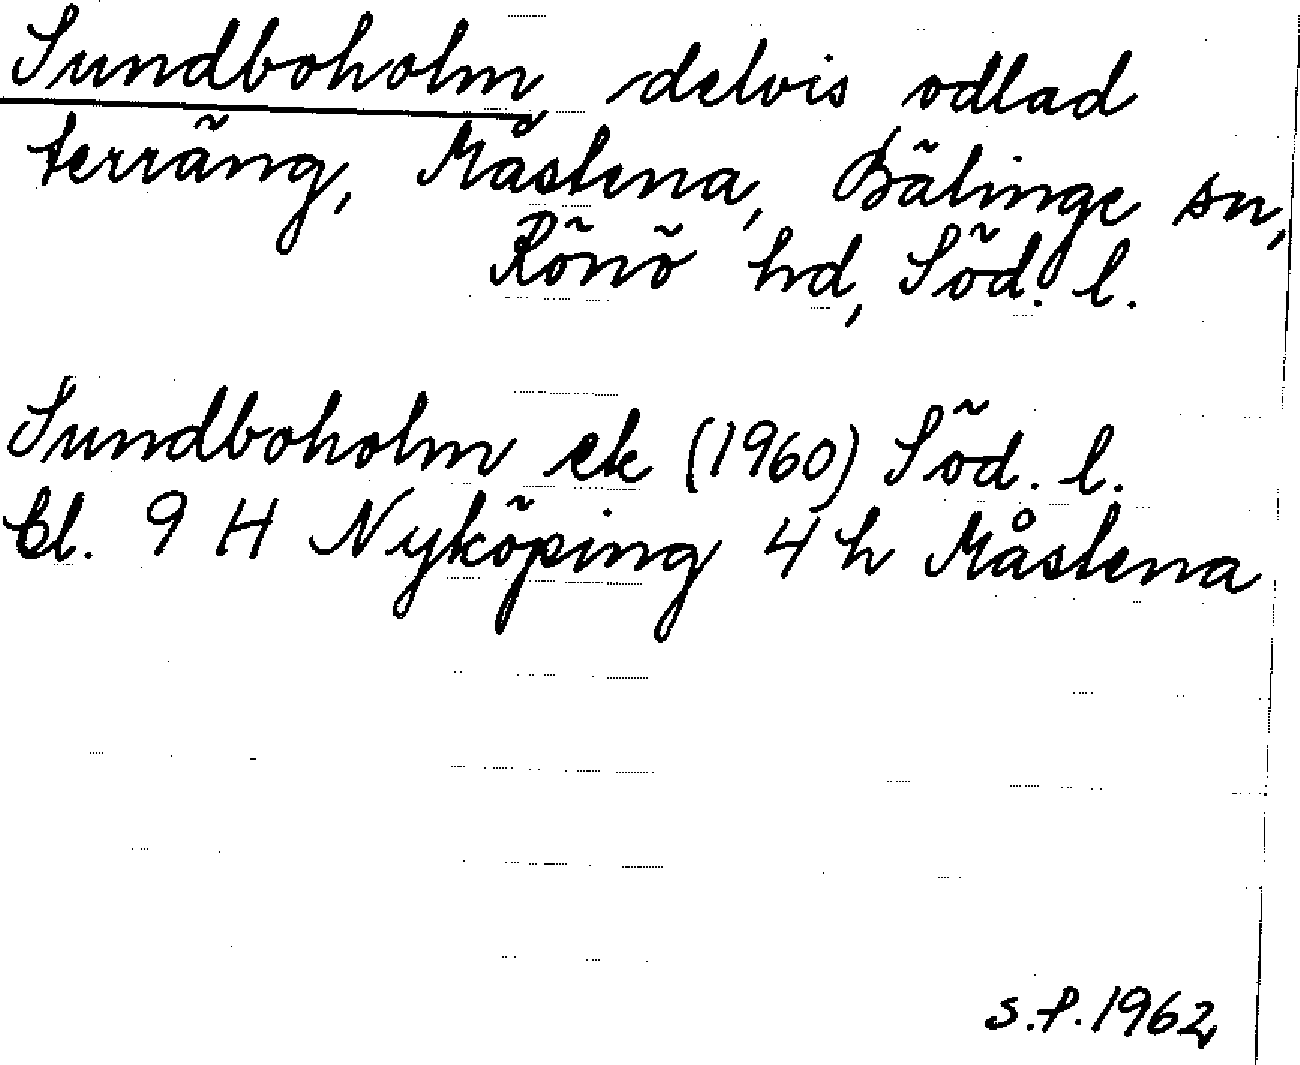 Sundboholm delvis odlad
terräng, Måstena, Bälinge sn,
Rönö hd, Söd. l.
Sundboholm ek (1960) Söd. l.
bl. 9 H Nyköping 4 h Måstena
s.f. 1962